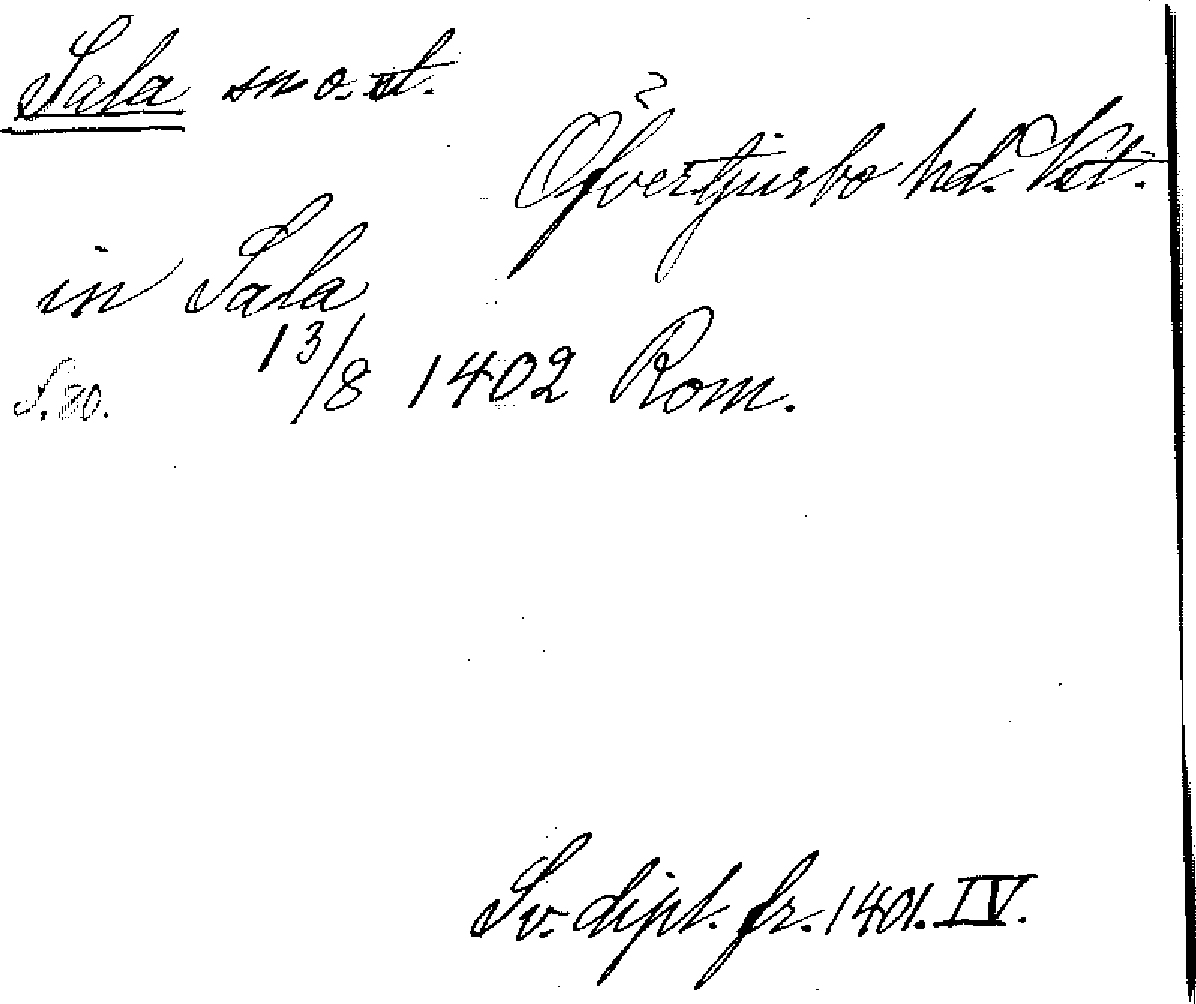 Sala sn o. st.
Öfvertjurbo hd. Vst.
in Sala
13/8 1402 Rom.
S. 80.
Sv. dipl. fr. 1401. IV.